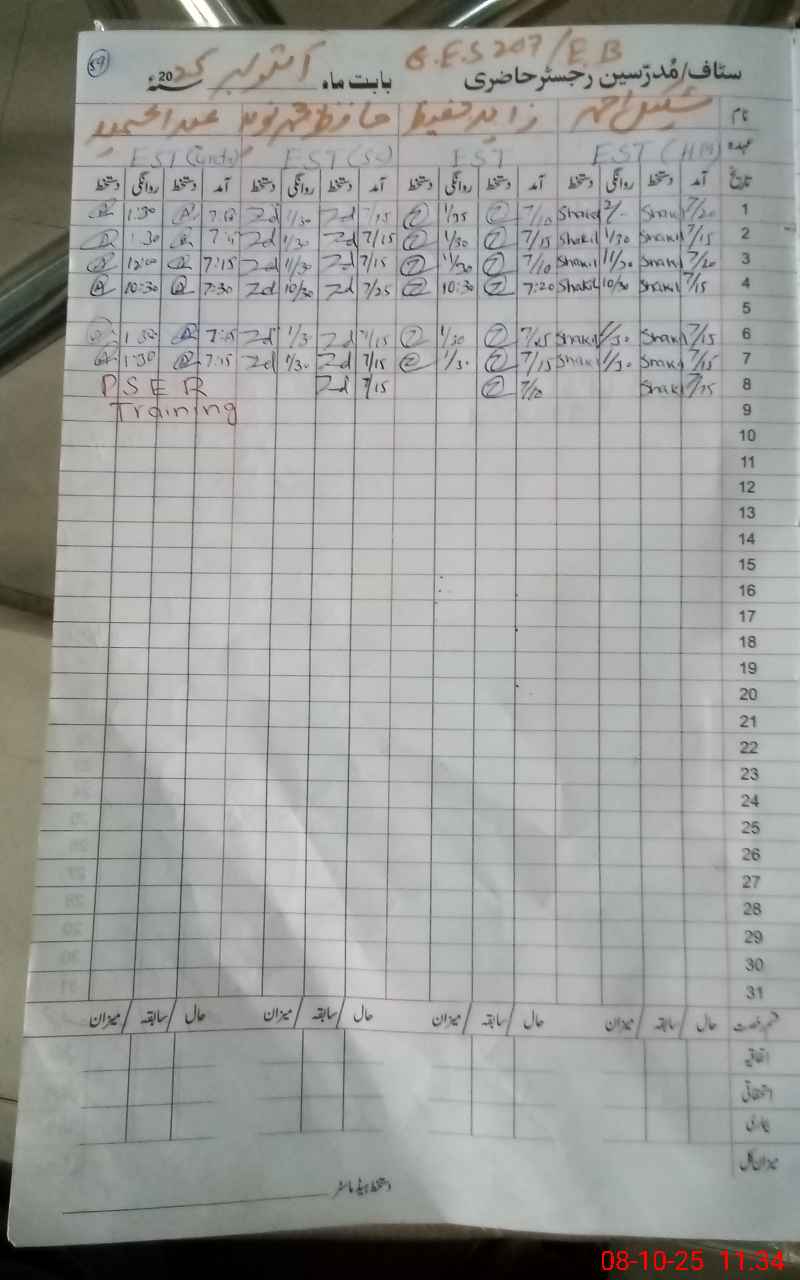 59
G.E.S 207/E.B
سٹاف/مُدرّسین رجسٹر حاضری بابت ماہ اکتوبر 2025ء
نام شکیل احمد زاہد حفیظ حافظ محمد نوید عبدالحمید
عہدہ EST (H.M) EST EST (Sc)
تاریخ آمد دستخط روانگی دستخط آمد دستخط روانگی دستخط آمد دستخط روانگی دستخط آمد دستخط روانگی دستخط
1 7/20 Shakil Shakil 7/10 7/15 Zd 1/30 Zd 1:30
2 7/15 Shakil 1/30 Shakil 7/15 1/30 7/15 Zd 1/30 Zd 1:30
3 7/20 Shakil 11/30 Shakil 7/10 11/30 7/15 Zd 11/30 Zd 7:15 12:00
4 7/15 Shakil 10/30 Shakil 7:20 10:30 7/25 Zd 10/30 Zd 7:30 10:30
5
6 7/15 Shakil 1/30 Shakil 1/30 7/15 Zd 1/30 Zd 7:15 1:30
7 7/15 Shakil 1/30 Shakil 7/15 1/30 7/15 Zd 1/30 Zd 7:15 1:30
8 Shakil 7/10 7/15 Zd PSER
9 Training
10
11
12
13
14
15
16
17
18
19
20
21
22
23
24
25
26
27
28
29
30
31
حال / سابقہ / میزان حال / سابقہ / میزان حال / سابقہ / میزان حال / سابقہ / میزان
اتفاقیہ
استحقاقی
بیماری
میزان کل
دستخط ہیڈ ماسٹر
08-10-25 11:34